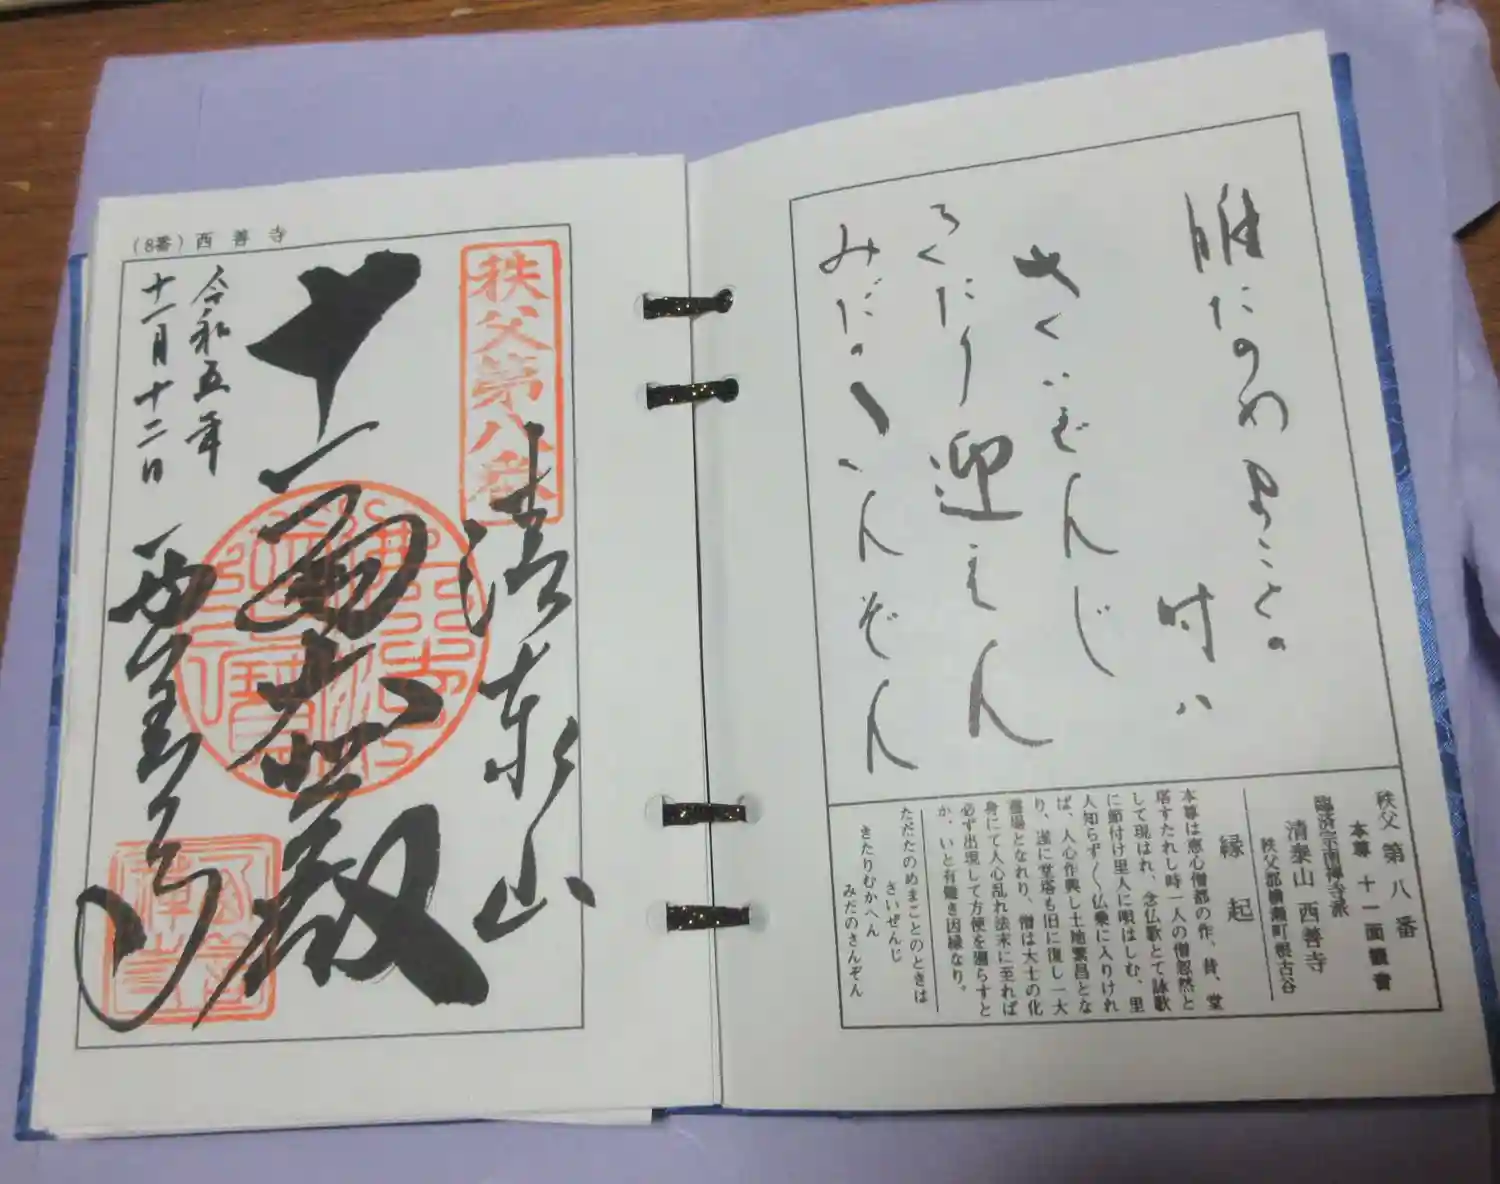 誰たのめまことの
時ハ
さいぜんじ
きたり迎えん
みだのさんぞん
秩父第八番
本尊 十一面観音
臨済宗南禅寺派
清泰山 西善寺
秩父郡横瀬町根古谷
縁起
本尊は恵心僧都の作、昔、堂
塔すたれし時一人の僧忽然と
して現はれ、念仏歌とて詠歌
に節付け里人に唄はしむ、里
人知らず〱仏乗に入りけれ
ば、人心作興し土地繁昌とな
り、遂に堂塔も旧に復し一大
霊場となれり、僧は大士の化
身にて人心乱れ法末に至れば
必ず出現して方便を廻らすと
か、いと有難き因縁なり。
ただたのめまことのときは
さいぜんじ
きたりむかへん
みだのさんぞん
(8番) 西善寺
秩父第八番
清泰山
十一面大悲殿
令和五年
十一月十二日
西善寺